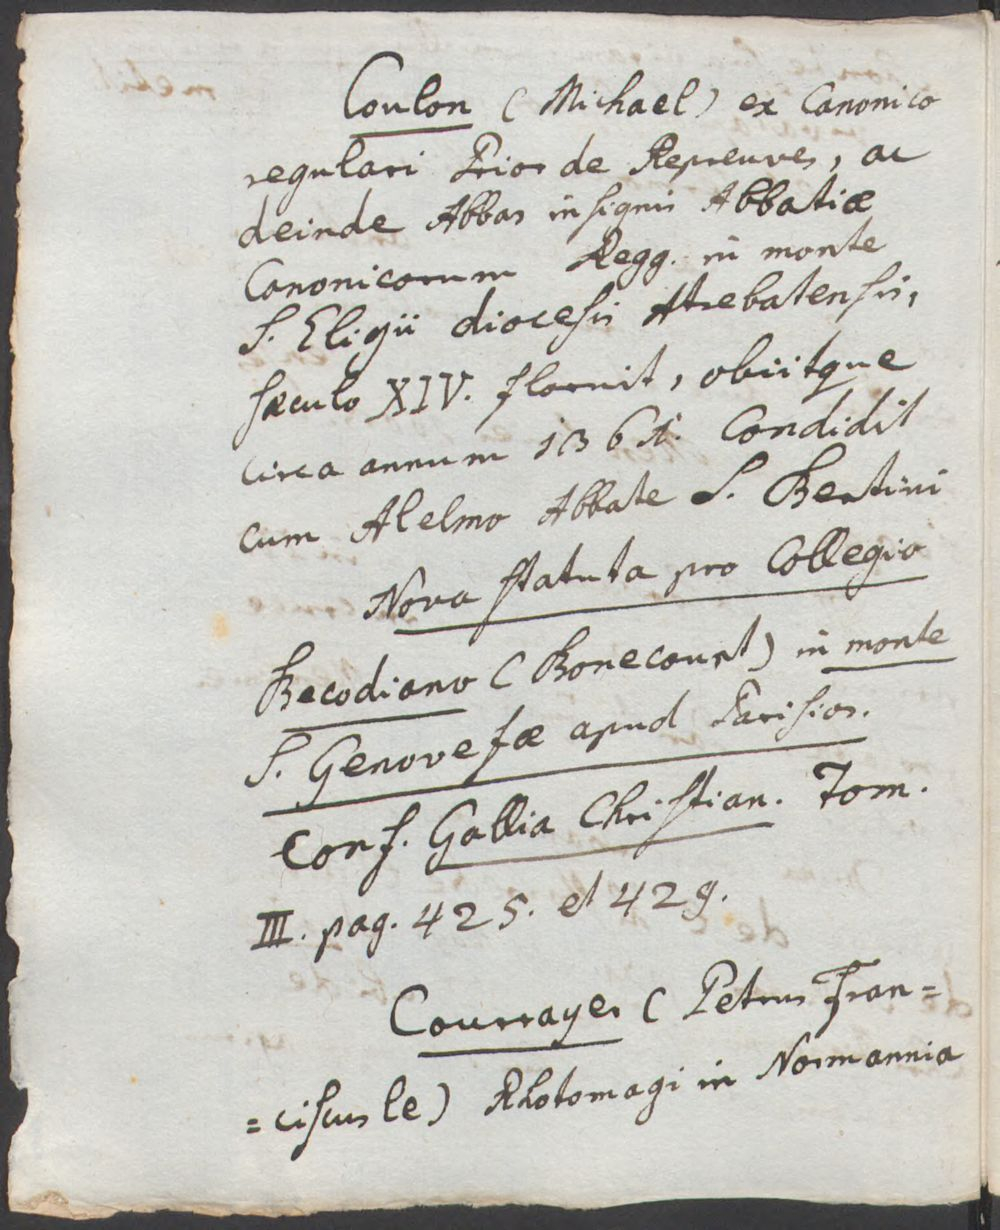 Coulon (Michael) ex Canonico
regulari Prior de Repreuves, ac
deinde Abbas insignis Abbatiæ
Canonicorum Regg. in monte
S. Eligii diocesis Atrebatensis,
sæculo XIV. floruit, obiitque
circa annum 1361. Condidit
cum Alelmo Abbate S. Bertini
Nova statuta pro Collegio
Becodiano (Bonecourt) in monte
S. Genovefæ apud Parisios.
Conf. Gallia Christian. Tom.
III. pag. 425. et 429.
Courrayer (Petrus Fran=
=ciscus le) Rhotomagi in Normannia